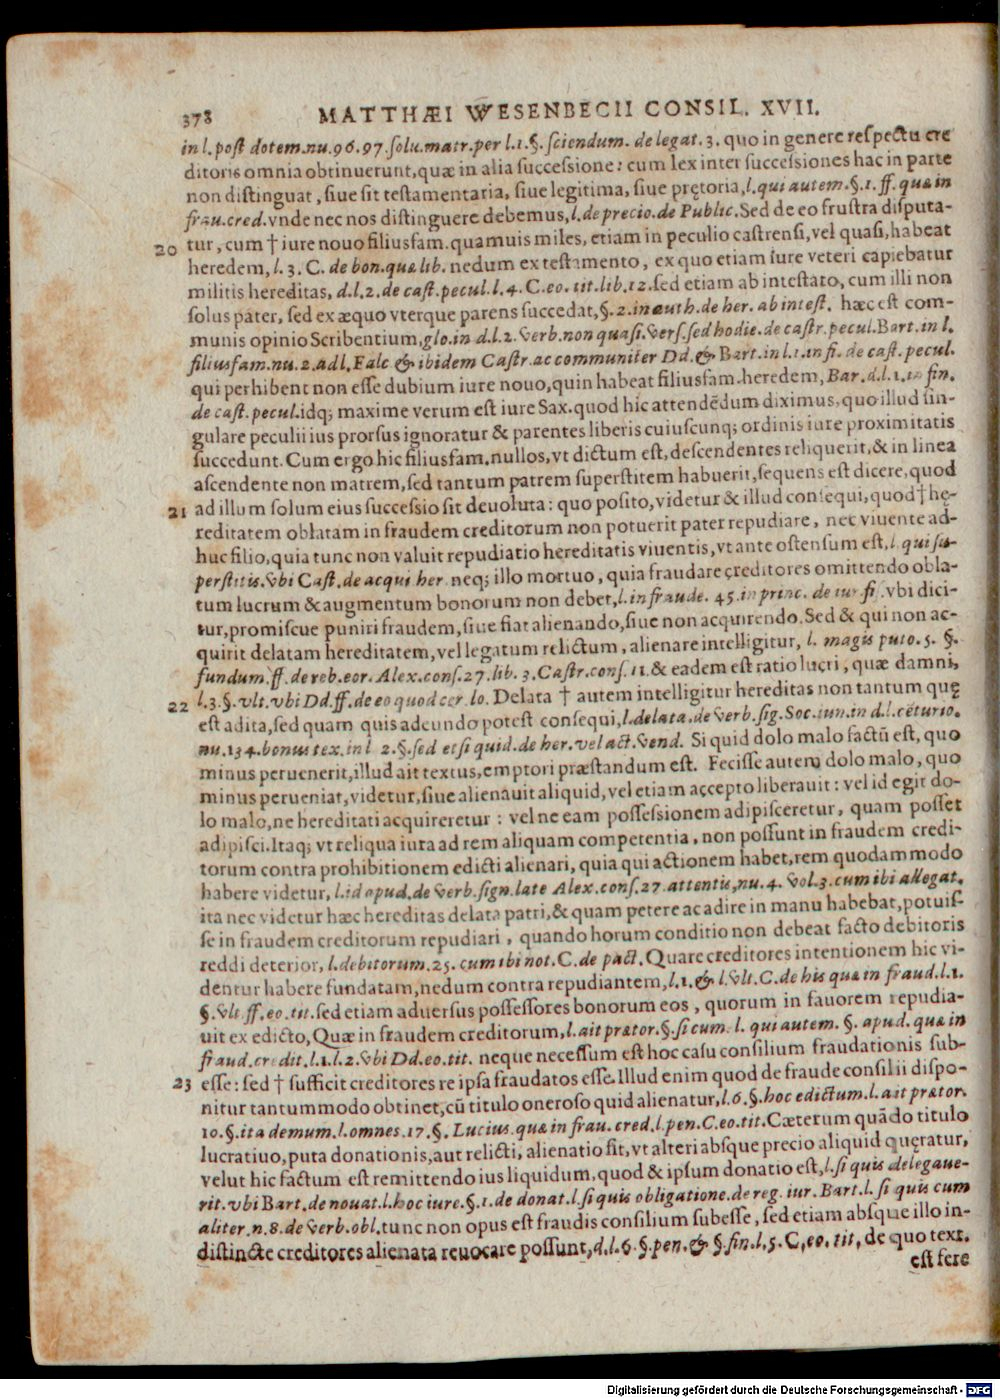 378 MATTHÆI WESENBECII CONSIL. XVII.
in l. post dotem. nu. 96. 97. solu. matr. per l. 1. §. sciendum. de legat. 3. quo in genere respectu cre
ditoris omnia obtinuerunt, quæ in alia successione: cum lex inter successiones hac in parte
non distinguat, siue sit testamentaria, siue legitima, siue prętoria, l. qui autem. §. 1. ff. quæ in
frau. cred. vnde nec nos distinguere debemus, l. de precio. de Public. Sed de eo frustra disputa-
20 tur, cum † iure nouo filiusfam. quamuis miles, etiam in peculio castrensi, vel quasi, habeat
heredem, l. 3. C. de bon. quæ lib. nedum ex testamento, ex quo etiam iure veteri capiebatur
militis hereditas, d. l. 2. de cast. pecul. l. 4. C. eo. tit. lib. 12. sed etiam ab intestato, cum illi non
solus pater, sed ex æquo vterque parens succedat, §. 2. in auth. de her. ab intest. hæc est com-
munis opinio Scribentium, glo. in d. l. 2. verb. non quasi. vers. sed hodie. de castr. pecul. Bart. in l.
filiusfam. nu. 2. ad l. Falc & ibidem Castr. ac communiter Dd. & Bart. in l. 1. in fi. de cast. pecul.
qui perhibent non esse dubium iure nouo, quin habeat filiusfam. heredem, Bar. d. l. 1. in fin.
de cast. pecul. idq; maxime verum est iure Sax. quod hic attendẽdum diximus, quo illud sin-
gulare peculii ius prorsus ignoratur & parentes liberis cuiuscunq; ordinis iure proximitatis
succedunt. Cum ergo hic filiusfam. nullos, vt dictum est, descendentes reliquerit, & in linea
ascendente non matrem, sed tantum patrem superstitem habuerit, sequens est dicere, quod
21 ad illum solum eius successio sit deuoluta: quo posito, videtur & illud consequi, quod † hę-
reditatem oblatam in fraudem creditorum non potuerit pater repudiare, nec viuente ad-
huc filio, quia tunc non valuit repudiatio hereditatis viuentis, vt ante ostensum est, l. qui su-
perstitis. vbi Cast. de acqui her. neq; illo mortuo, quia fraudare creditores omittendo obla-
tum lucrum & augmentum bonorum non debet, l. in fraude. 45. in princ. de iur. fis. vbi dici-
tur, promiscue puniri fraudem, siue fiat alienando, siue non acquirendo. Sed & qui non ac-
quirit delatam hereditatem, vel legatum relictum, alienare intelligitur, l. magis puto. 5. §.
fundum. ff. de reb. eor. Alex. cons. 27. lib. 3. Castr. cons. 11. & eadem est ratio lucri, quæ damni,
l. 3. §. vlt. vbi Dd. ff. de eo quod cer lo. Delata † autem intelligitur hereditas non tantum quę
22 est adita, sed quam quis adeundo potest consequi, l. delata. de verb. sig. Soc. iun. in d. l. cẽturio.
nu. 134. bonus tex. in l 2. §. sed et si quid. de her. vel act. vend. Si quid dolo malo factũ est, quo
minus peruenerit, illud ait textus, emptori præstandum est. Fecisse autem dolo malo, quo
minus perueniat, videtur, siue alienauit aliquid, vel etiam accepto liberauit: vel id egit do-
lo malo, ne hereditati acquireretur: vel ne eam possessionem adipisceretur, quam posset
adipisci. Itaq; vt reliqua iura ad rem aliquam competentia, non possunt in fraudem credi-
torum contra prohibitionem edicti alienari, quia qui actionem habet, rem quodammodo
habere videtur, l. id apud. de verb. sign. late Alex. cons. 27. attentis, nu. 4. vol. 3. cum ibi allegat.
ita nec videtur hæc hereditas delata patri, & quam petere ac adire in manu habebat, potuis-
se in fraudem creditorum repudiari, quando horum conditio non debeat facto debitoris
reddi deterior, l. debitorum. 25. cum ibi not. C. de pact. Quare creditores intentionem hic vi-
dentur habere fundatam, nedum contra repudiantem, l. 1. & l. vlt. C. de his quæ in fraud. l. 1.
§. vlt ff. eo. tit. sed etiam aduersus possessores bonorum eos, quorum in fauorem repudia-
uit ex edicto, Quæ in fraudem creditorum, l. ait prætor. §. si cum. l. qui autem. §. apud. quæ in
fraud. credit. l. 1. l. 2. vbi Dd. eo. tit. neque necessum est hoc casu consilium fraudationis sub-
23 esse: sed † sufficit creditores re ipsa fraudatos esse. Illud enim quod de fraude consilii dispo-
nitur tantummodo obtinet, cũ titulo oneroso quid alienatur, l. 6. §. hoc edictum. l. ait prætor.
10. §. ita demum. l. omnes. 17. §. Lucius. quæ in frau. cred. l. pen. C. eo. tit. Cæterum quãdo titulo
lucratiuo, puta donationis, aut relicti, alienatio fit, vt alteri absque precio aliquid quęratur,
velut hic factum est remittendo ius liquidum, quod & ipsum donatio est, l. si quis delegaue-
rit. vbi Bart. de nouat. l. hoc iure. §. 1. de donat. l. si quis obligatione. de reg. iur. Bart. l. si quis cum
aliter. n. 8. de verb. obl. tunc non opus est fraudis consilium subesse, sed etiam absque illo in-
distincte creditores alienata reuocare possunt, d. l. 6. §. pen. & §. fin. l. 5. C, eo. tit, de quo text.
est fere
Digitalisierung gefördert durch die Deutsche Forschungsgemeinschaft - DFG